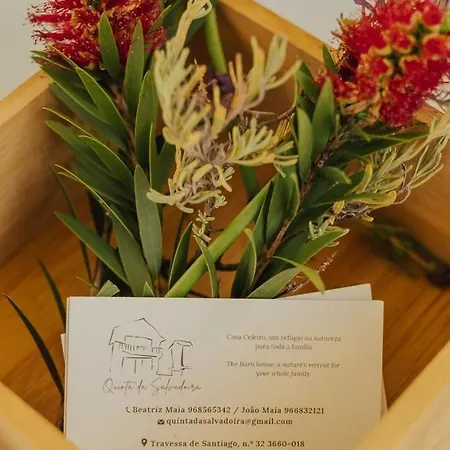 Casa Celeiro, um refúgio na natureza
para toda a família
The Barn house, a nature's retreat for
your whole family.
Quinta da Salvadoira
Beatriz Maia 968565342 / João Maia 966832121
quintadasalvadoira@gmail.com
Travessa de Santiago, n.º 32 3660-018